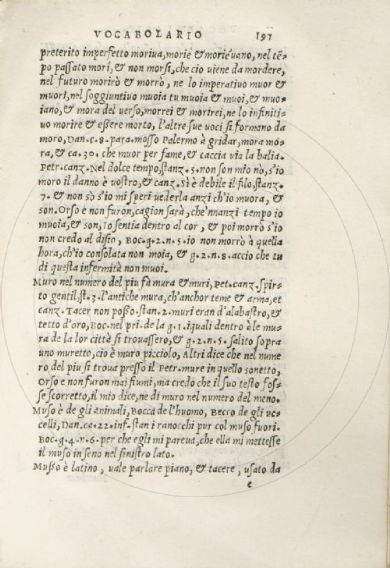 VOCABOLARIO 197
preterito imperfetto moriua, moriè & moriéuano, nel tē-
po passato mori, & non morsi, che cio uiene da mordere,
nel futuro morirò & morrò, ne lo imperatiuo muor &
muori, nel soggiuntiuo muoia tu muoia & muoi, & muo-
iano, & mora del uerso, morrei & mortrei, ne lo infiniti-
uo morire & essere morto, l'altre sue uoci si formano da
moro, Dan.c.8. para. mosso Palermo à gridar, mora mo-
ra, & ca.30. che muor per fame, & caccia via la balia.
Petr.canz. Nel dolce tempo, stanz.5. non son mio nò, s'io
moro il danno è uostro, & canz. Si è debile il filo, stanz.
7. & non sò s'io mi speri uederla anzi ch'io muora, &
son. Orso e non furon, cagion sarà, che'nnanzi tempo io
muoia, & son, io sentia dentro al cor, & poi morrò s'io
non credo al disio, Boc.g.2.n.5. io non morrò à quella
hora, ch'io consolata non moia, & g.2.n.8. accio che tu
di questa infermità non muoi.
Muro nel numero del piu fà mura & muri, Pet.canz. spir-
to gentil, st.3. l'antiche mura, ch'anchor teme & arma, et
canz. Tacer non posso, stan.2. muri eran d'alabastro, &
tetto d'oro, Boc. nel pri. de la g.1. iquali dentro à le mu-
ra de la lor città si trouassero, & g.2.n.5. salito sopra
uno muretto, ciò è muro picciolo, Altri dice che nel nume
ro del piu si troua presso il Petr. mure in quello sonetto,
Orso e non furon mai fiumi, ma credo che il suo testo fos-
se scorretto, il mio dice, ne di muro nel numero del meno.
Muso è de gli animali, Bocca de l'huomo, Becco de gli uc-
celli, Dan.ca.22.inf. stan i ranocchi pur col muso fuori.
Boc.g.4.n.6. per che egli mi pareua, che ella mi mettesse
il muso in seno nel sinistro lato.
Musso è latino, uale parlare piano, & tacere, usato da
c